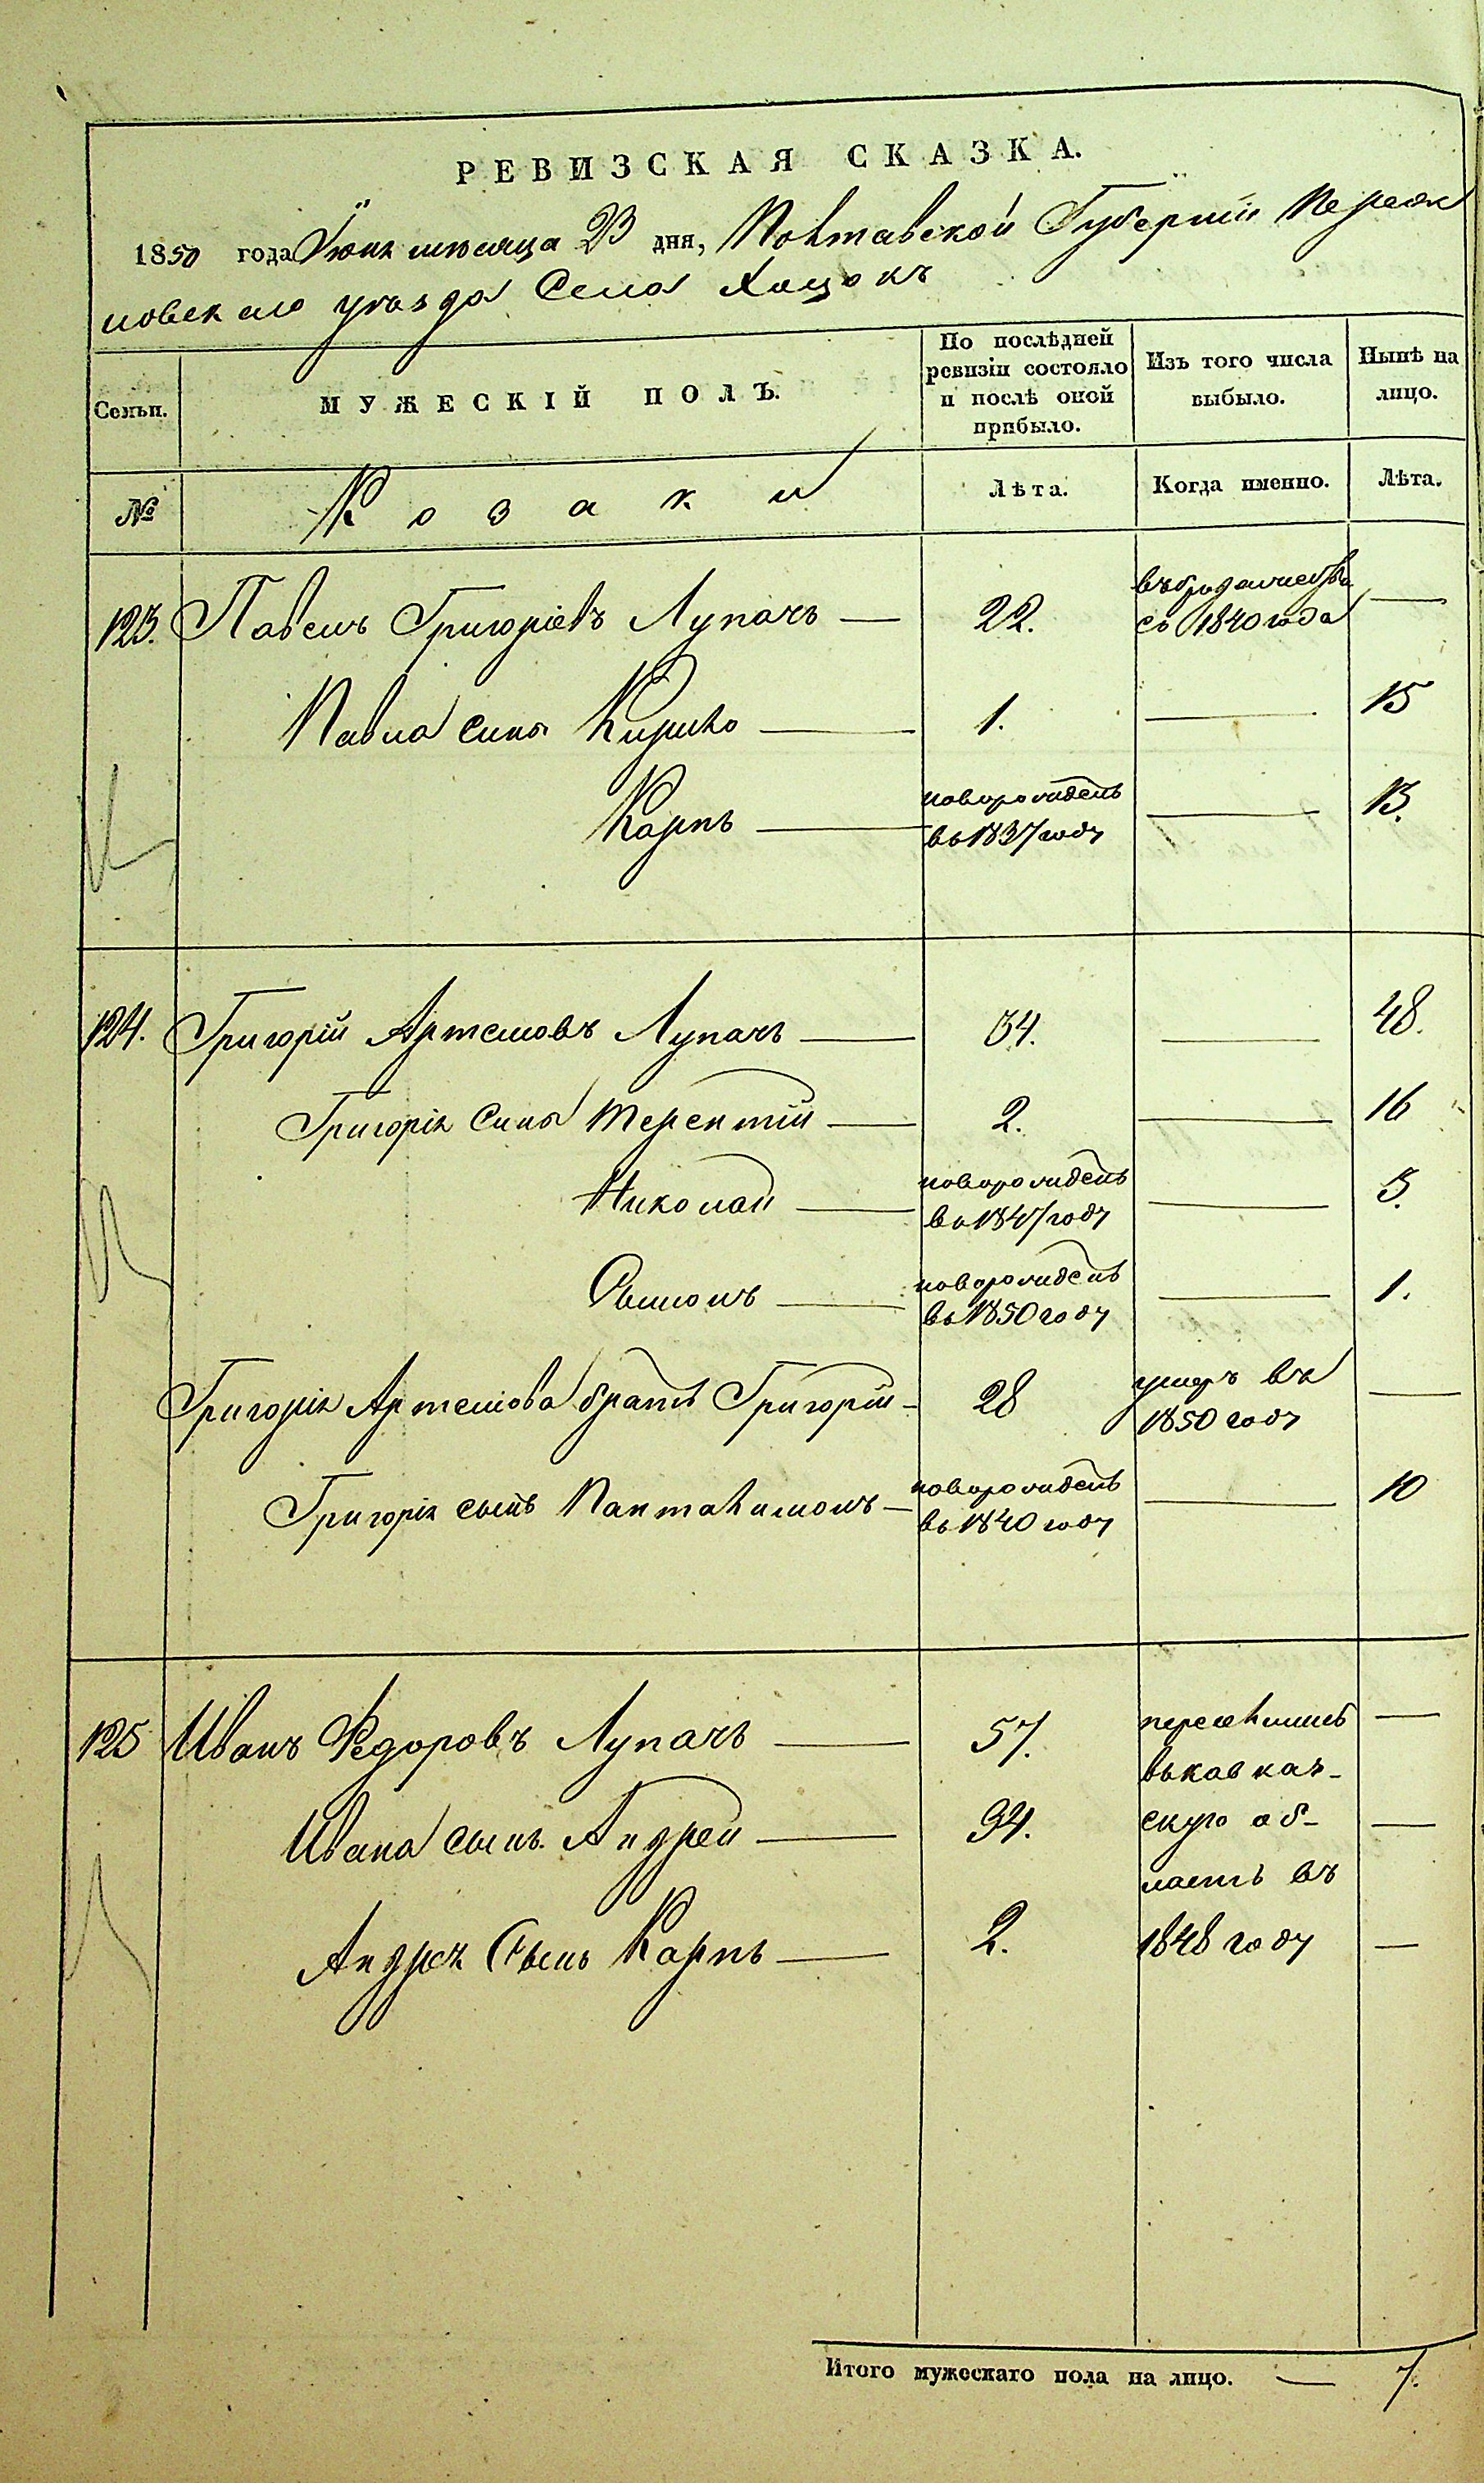 РЕВИЗСКАЯ СКАЗКА.
1850 года Іюня мѣсяца 23 дня, Полтавской Губерніи Переяс
ловскаго уѣзда Села Хоцокъ
Семьи.
МУЖЕСКІЙ ПОЛЪ.
По послѣдней ревизіи состояло и послѣ оной прибыло.
Изъ того числа выбыло.
Нынѣ на лицо.
№ Козаки Лѣта. Когда именно. Лѣта.
123. Павелъ Григоріевъ Лупачъ — 22. въ бродяжествѣ —
съ 1840 года
Павла сины Кирило — 1. — 15
Карпъ — новорожденъ — 13.
въ 1837 году
124. Григорій Артемовъ Лупачъ — 34. — 48.
Григорія сины Терентій — 2. — 16
Николай — новорожденъ — 3.
въ 1847 году
новорожденъ — 1.
въ 1850 году
Григорія Артемова братъ Григорій — 28 умеръ въ —
1850 году
Григорія сынъ Панталимонъ — новорожденъ — 10
въ 1840 году
125 Иванъ Федоровъ Лупачъ — 57. переселились —
въ кавказ-
Ивана сынъ Андрей — 34. скую об- —
ласть въ
Андрея Сынъ Карпъ — 2. 1848 году —
Итого мужескаго пола на лицо. — 7.